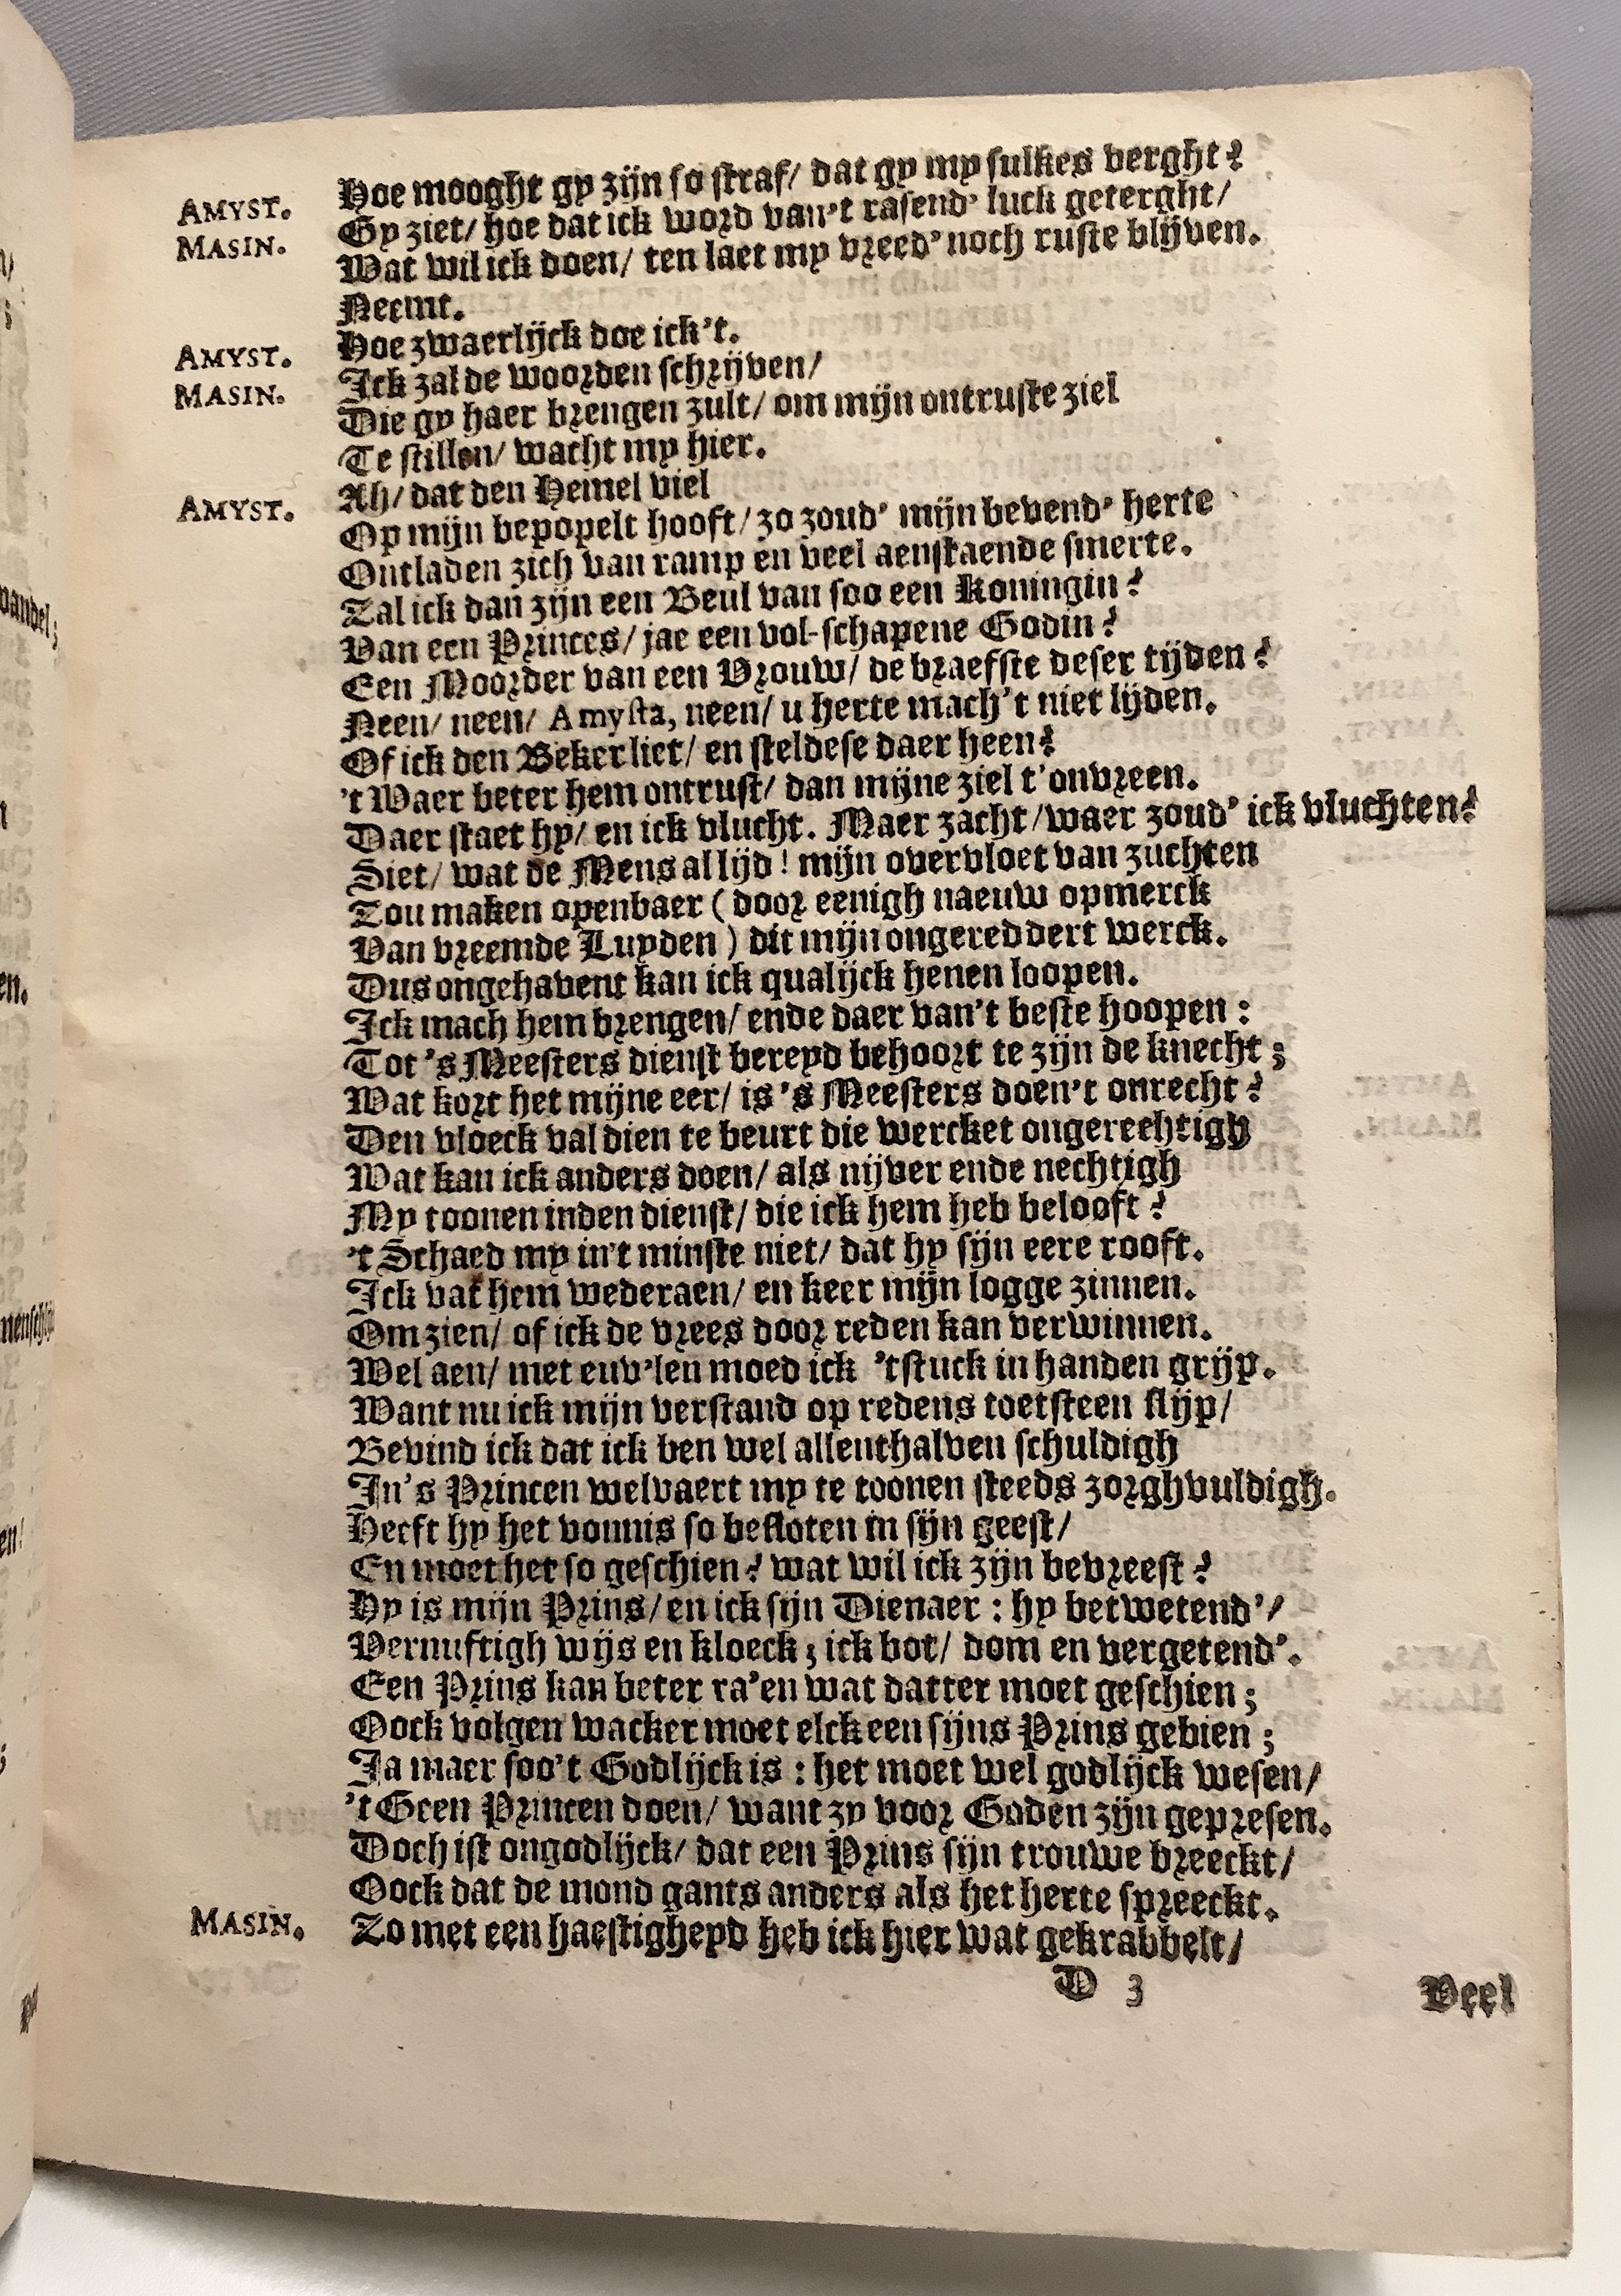 AMYST. Hoe mooght gy zijn so straf/ dat gy my sulkes verght?
MASIN. Gy ziet/ hoe dat ick word van't rasend' luck geterght/
Wat wil ick doen/ ten laet my vreed' noch ruste blijven.
Neemt.
AMYST. Hoe zwaerlijck doe ick't.
MASIN. Ick zal de woorden schrijven/
Die gy haer brengen zult/ om mijn ontruste ziel
Te stillen/ wacht my hier.
AMYST. Ah/ dat den Hemel viel
Op mijn bepopelt hooft/ zo zoud' mijn bevend' herte
Ontladen zich van ramp en veel aenstaende smerte.
Zal ick dan zijn een Beul van soo een Koningin?
Van een Princes/ jae een vol-schapene Godin?
Een Moorder van een Vrouw/ de braefste deser tijden?
Neen/ neen/ Amysta, neen/ u herte mach't niet lijden.
Of ick den Beker liet/ en stelde se daer heen?
't Waer beter hem ontrust/ dan mijne ziel t'onvreen.
Daer staet hy/ en ick vlucht. Maer zacht/ waer zoud' ick vluchten?
Siet/ wat de Mens al lijd! mijn overvloet van zuchten
Zou maken openbaer (door eenigh naeuw opmerck
Van vreemde Luyden) dit mijn ongereddert werck.
Dus ongehavent kan ick qualijck henen loopen.
Ick mach hem brengen/ ende daer van't beste hoopen:
Tot 's Meesters dienst bereyd behoort te zijn de knecht;
Wat kort het mijne eer/ is 's Meesters doen't onrecht?
Den vloeck val dien te beurt die wercket ongerechtigh
Wat kan ick anders doen/ als nijver ende nechtigh
My toonen inden dienst/ die ick hem heb belooft?
't Schaed my in't minste niet/ dat hy sijn eere rooft.
Ick vat hem weder aen/ en keer mijn logge zinnen.
Om zien/ of ick de vrees door reden kan verwinnen.
Wel aen/ met euv'len moed ick 't stuck in handen grijp.
Want nu ick mijn verstand op redens toetsteen slijp/
Bevind ick dat ick ben wel allenthalven schuldigh
In's Princen welvaert my te toonen steeds zorghvuldigh.
Heeft hy het vonnis so besloten in sijn geest/
En moet het so geschien? wat wil ick zijn bevreest?
Hy is mijn Prins/ en ick sijn Dienaer: hy betwetend'/
Vernuftigh wijs en kloeck; ick bot/ dom en vergetend'.
Een Prins kan beter ra'en wat datter moet geschien;
Oock volgen wacker moet elck een sijns Prins gebien;
Ja maer soo't Godlijck is: het moet wel godlijck wesen/
't Geen Princen doen/ want zy voor Goden zijn gepresen.
Doch ist ongodlijck/ dat een Prins sijn trouwe breeckt/
Oock dat de mond gants anders als het herte spreeckt.
MASIN. Zo met een haestigheyd heb ick hier wat gekrabbelt/
D 3 Veel